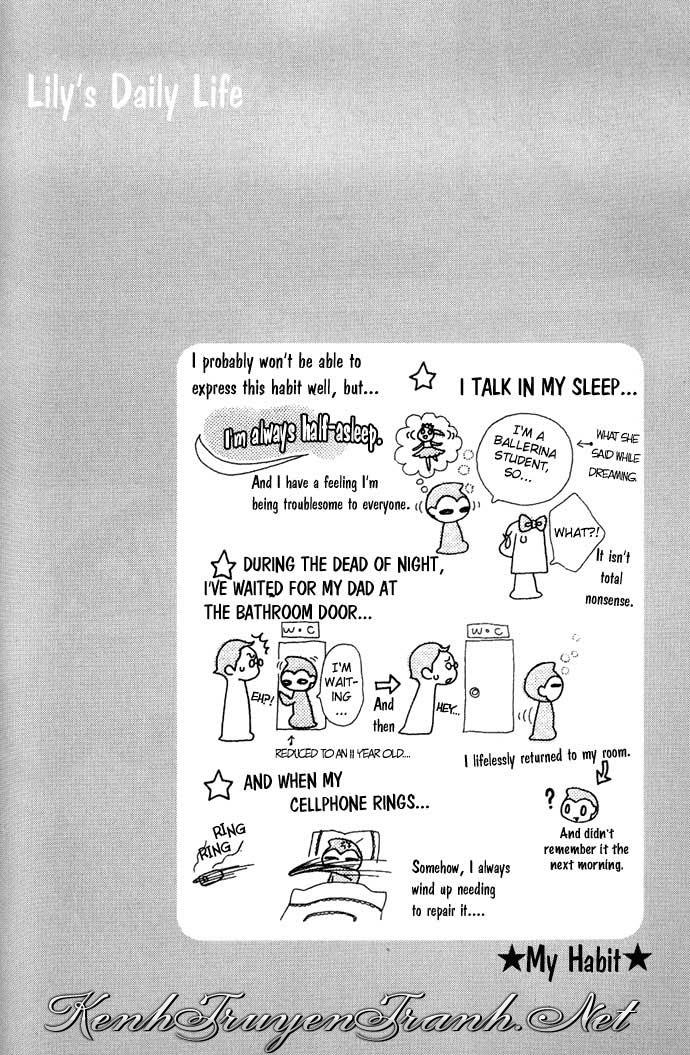 Lily's Daily Life
I probably won't be able to
express this habit well, but...
I'm always half-asleep.
And I have a feeling I'm
being troublesome to everyone.
☆ I TALK IN MY SLEEP...
I'M A
BALLERINA
STUDENT,
SO...
← WHAT SHE
SAID WHILE
DREAMING.
WHAT?!
It isn't
total
nonsense.
☆ DURING THE DEAD OF NIGHT,
I'VE WAITED FOR MY DAD AT
THE BATHROOM DOOR...
W•C
EHP!
I'M
WAIT-
ING
...
↑
REDUCED TO AN 11 YEAR OLD....
⇒
And
then
W•C
HEY...
I lifelessly returned to my room.
?
And didn't
remember it the
next morning.
☆ AND WHEN MY
CELLPHONE RINGS...
RING
RING
Somehow, I always
wind up needing
to repair it....
★My Habit★
KenhTruyenTranh.Net